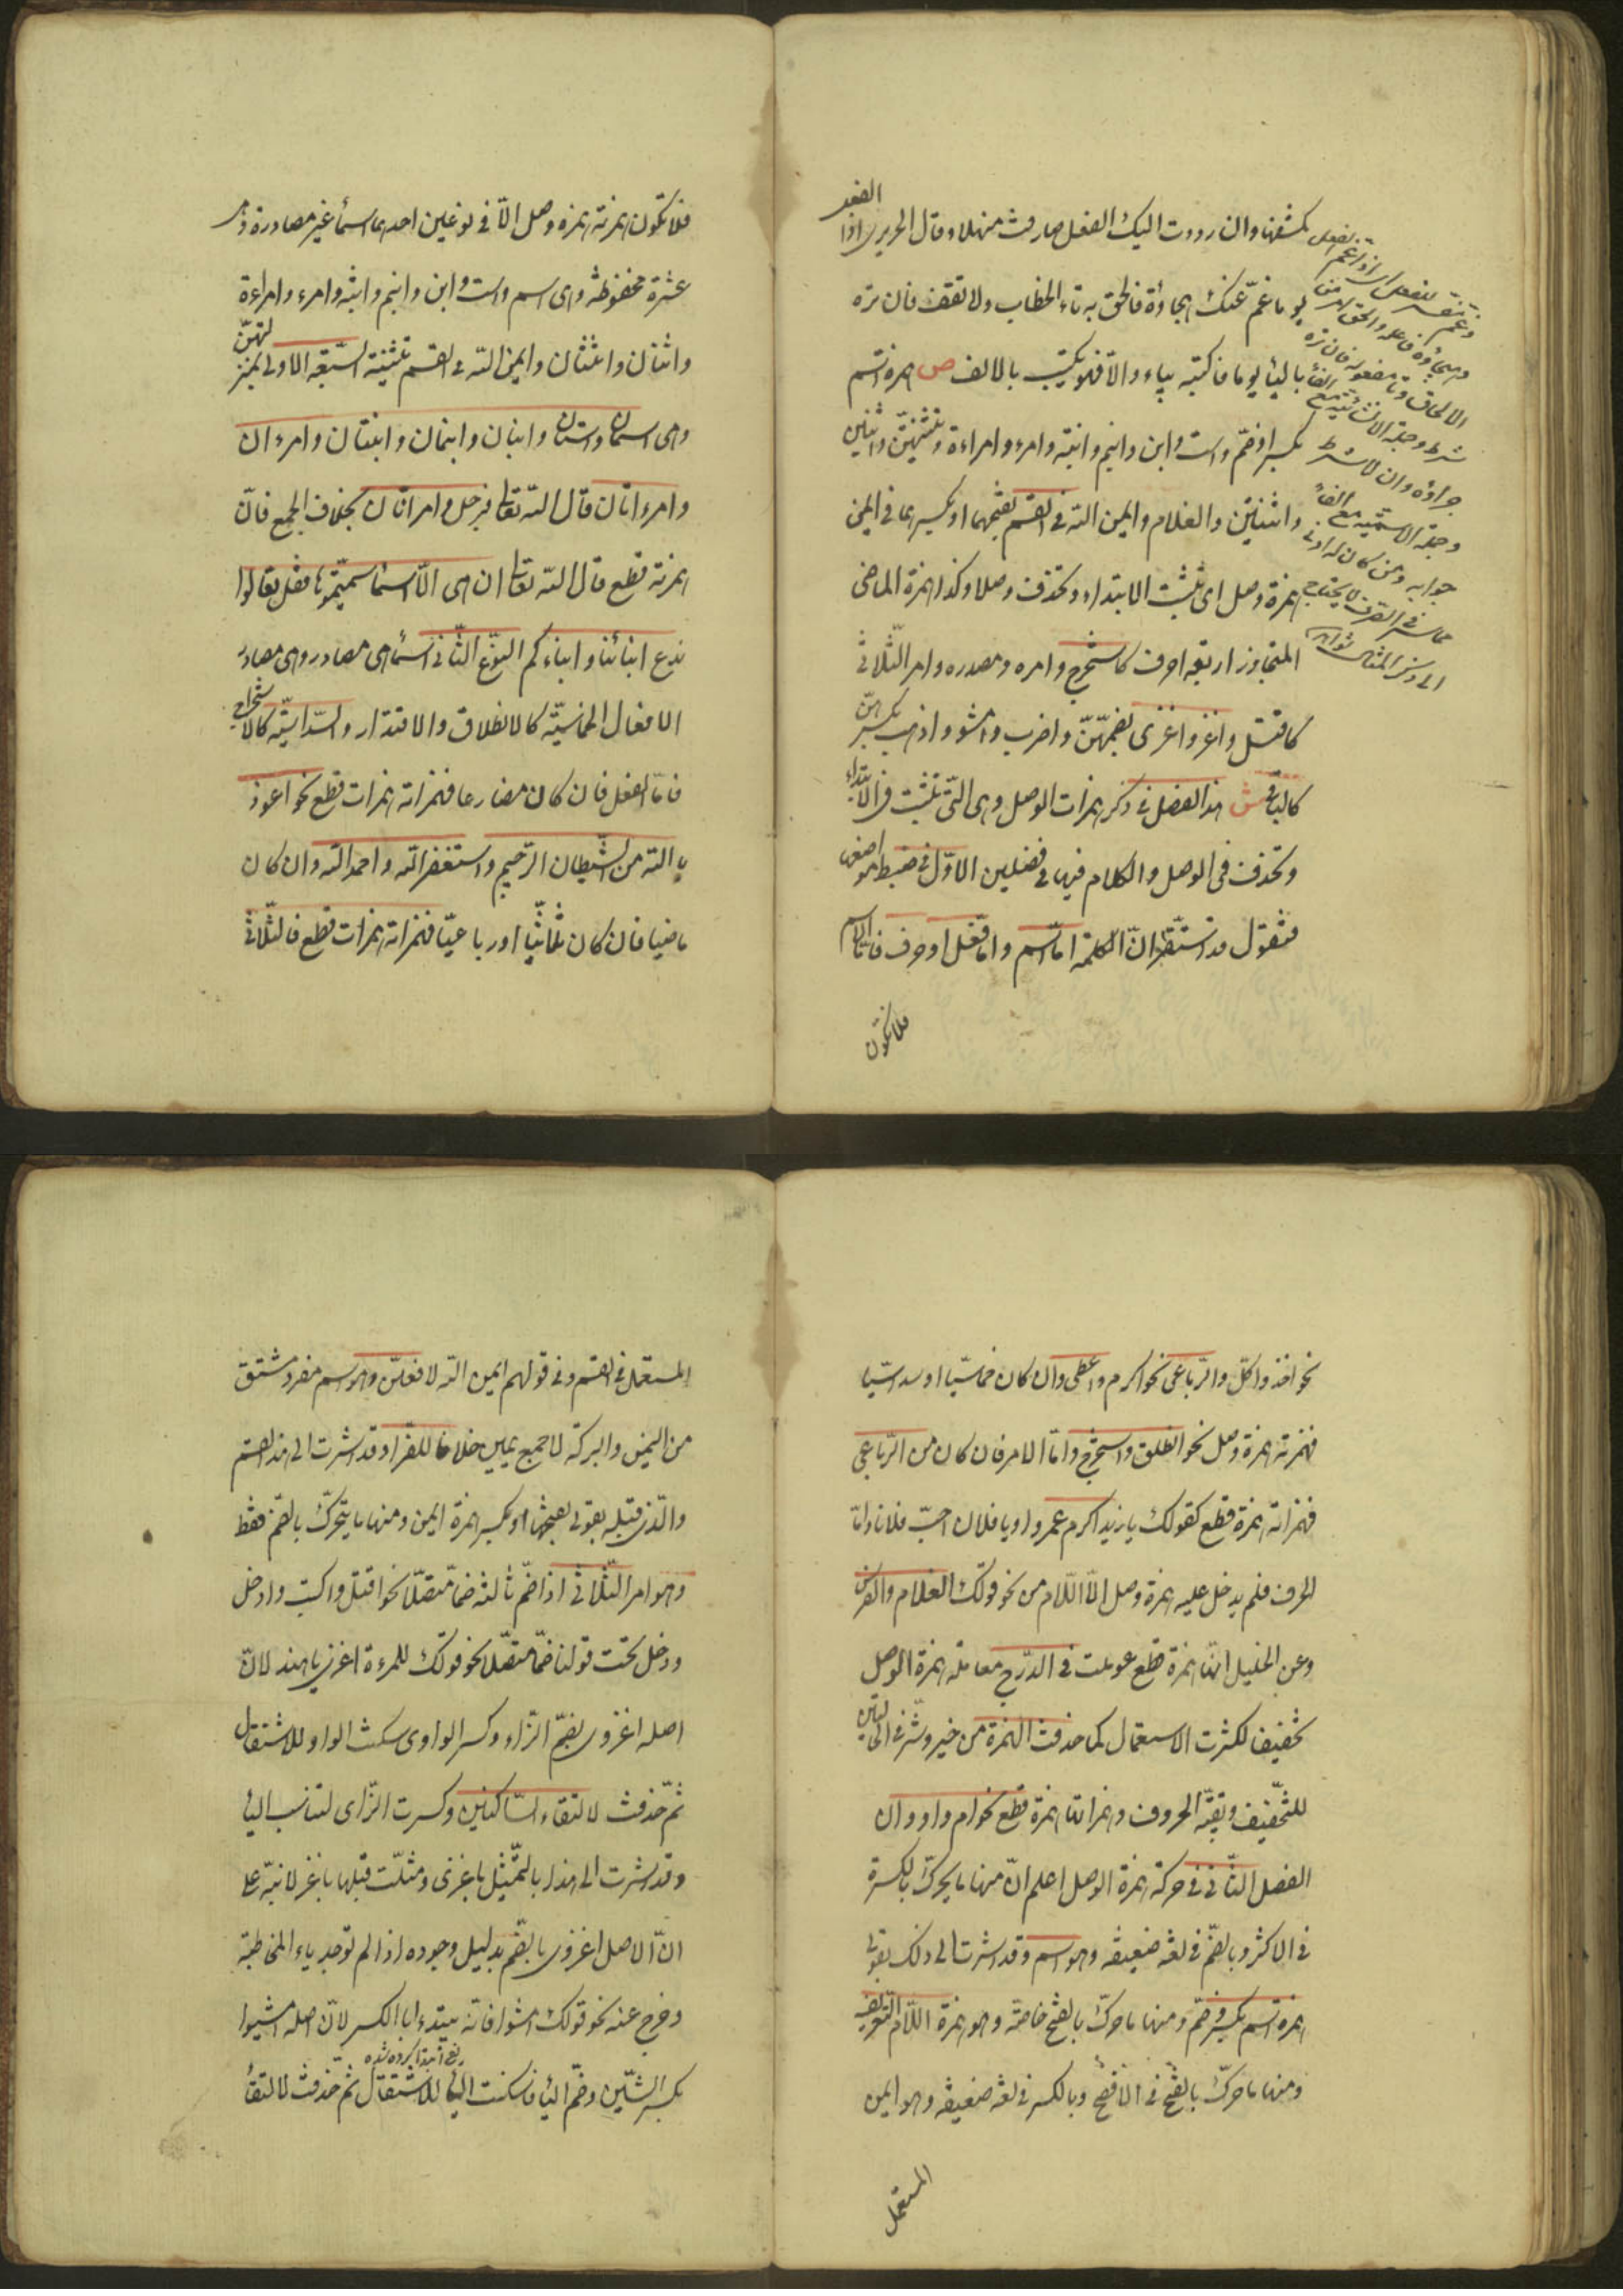 يكشفها وان رددت اليك الفعل صادفت منهلا وقال الحريرى اذا الفعل
يوما غمّ عنك هجاؤه فالحق به تاء الخطاب ولا تقف فان تره
بالياء يوما فاكتبه بياء والا فهو يكتب بالالف ص همزة اسم
بكسر وضمّ واست وابن وابنم وابنة وامرء وامراءة وتثنيتهنّ واثنين
واثنتين والغلام وايمن الله فى القسم بفتحهما او بكسر ها فى ايمن
همزة وصل اى تثبت الابتداء وتحذف وصلا وكذا همزة الماضى
المتجاوز اربعة احرف كاستخرج وامره ومصدره وامر الثّلاثى
كاقتل واغز واغزى بضمّهنّ واضرب وامشو واذهب بكسرهنّ
كالباقى ش هذا الفصل فى ذكر همزات الوصل وهى الّتى تثبت فى الابتداء
وتحذف فى الوصل والكلام فيها فى فصلين الاوّل فى ضبط مواضعها
فنقول قد استقرّ انّ الكلمة امّا اسم وامّا فعل او حرف فامّا الاسم
فلا تكون
فلا تكون همزته همزة وصل الّا فى نوعين احدهما اسماء غير مصادر وهى
عشرة محفوظة وهى اسم واست وابن وابنم وابنة وامرء وامراءة
واثنان واثنتان وايمن الله فى القسم تثنية السّبعة الاولى بمنزلتهنّ
وهى اسمان واستان وابنان وابنمان وابنتان وامرءان
وامرءاتان قال الله تعالى فرجل وامراتان بخلاف الجمع فانّ
همزته قطع قال الله تعالى ان هى الّا اسماء سمّيتموها فقل تعالوا
ندع ابنائنا وابناءكم النوع الثّانى اسماء هى مصادر وهى مصادر
الافعال الخماسيّة كالانطلاق والاقتدار والسّداسيّة كالاستخراج
فامّا الفعل فان كان مضارعا فهمزاته همزات قطع نحو اعوذ
بالله من الشّيطان الرّجيم واستغفر الله واحمد الله وان كان
ماضيا فان كان ثلاثيّا او رباعيّا فهمزاته همزات قطع فالثّلاثى
نحو اخذ واكل والرّباعى نحو اكرم واعطى وان كان خماسيّا او سداسيّا
فهمزته همزة وصل نحو انطلق واستخرج وامّا الامر فان كان من الرّباعى
فهمزاته همزة قطع كقولك يا زيد اكرم عمروا ويا فلان احبّ فلانا وامّا
الحرف فلم يدخل عليه همزة وصل الّا اللّام من نحو قولك الغلام والفرس
وعن الخليل انّها همزة قطع عوملت فى الدّرج معاملة همزة الوصل
تخفيفا لكثرت الاستعمال كما حذفت الهمزة من خير وشرّ فى الحالتين
للتّخفيف وبقيّة الحروف وهمزاتها همزة قطع نحو ام واو وان
الفصل الثّانى فى حركة همزة الوصل اعلم انّ منها ما يحرّك بالكسرة
فى الاكثر وبالضّمّ فى لغة ضعيفة وهو اسم وقد اشرت الى ذلك بقولى
همزة اسم بكسر وضمّ ومنها ما حرّك بالفتح خاصّة وهو همزة اللّام التّعريف
ومنها ما حرّك بالفتح فى الافصح وبالكسر فى لغة ضعيفة وهو ايمن
المستعمل
المستعمل فى القسم وفى قولهم ايمن الله لافعلنّ وهو اسم مفرد مشتق
من اليمن والبركة لا جمع يمين خلافا للفرّاء وقد اشرت الى هذا القسم
والّذى قبله بقولى بفتحهما او بكسر همزة ايمن ومنها ما يتحرّك بالضّمّ فقط
وهو امر الثّلاثى اذا ضمّ ثالثه ضمّا متصّلا نحو اقتل واكتب وادخل
ودخل تحت قولنا ضمّا متصّلا نحو قولك للمرءة اغزى يا هند لانّ
اصله اغزوى بضمّ الزّاء وكسر الواوى سكنت الواو للاستثقال
ثمّ حذفت لالتقاء السّاكنين وكسرت الزّاى لتناسب الياء
وقد اشرت الى هذا بالتّمثيل باغزى ومثّلت قبلها باغز لانبّه على
انّ الاصل اغزوى بالضّم بدليل وجوده اذا لم توجد ياء المخاطبة
وخرج عنه نحو قولك امشوا فانّه يبتدءا بالكسر لانّ اصله امشيوا
بكسر الشّين وضمّ الياء فاسكنت الياء للاستثقال ثمّ حذفت لالتقاء